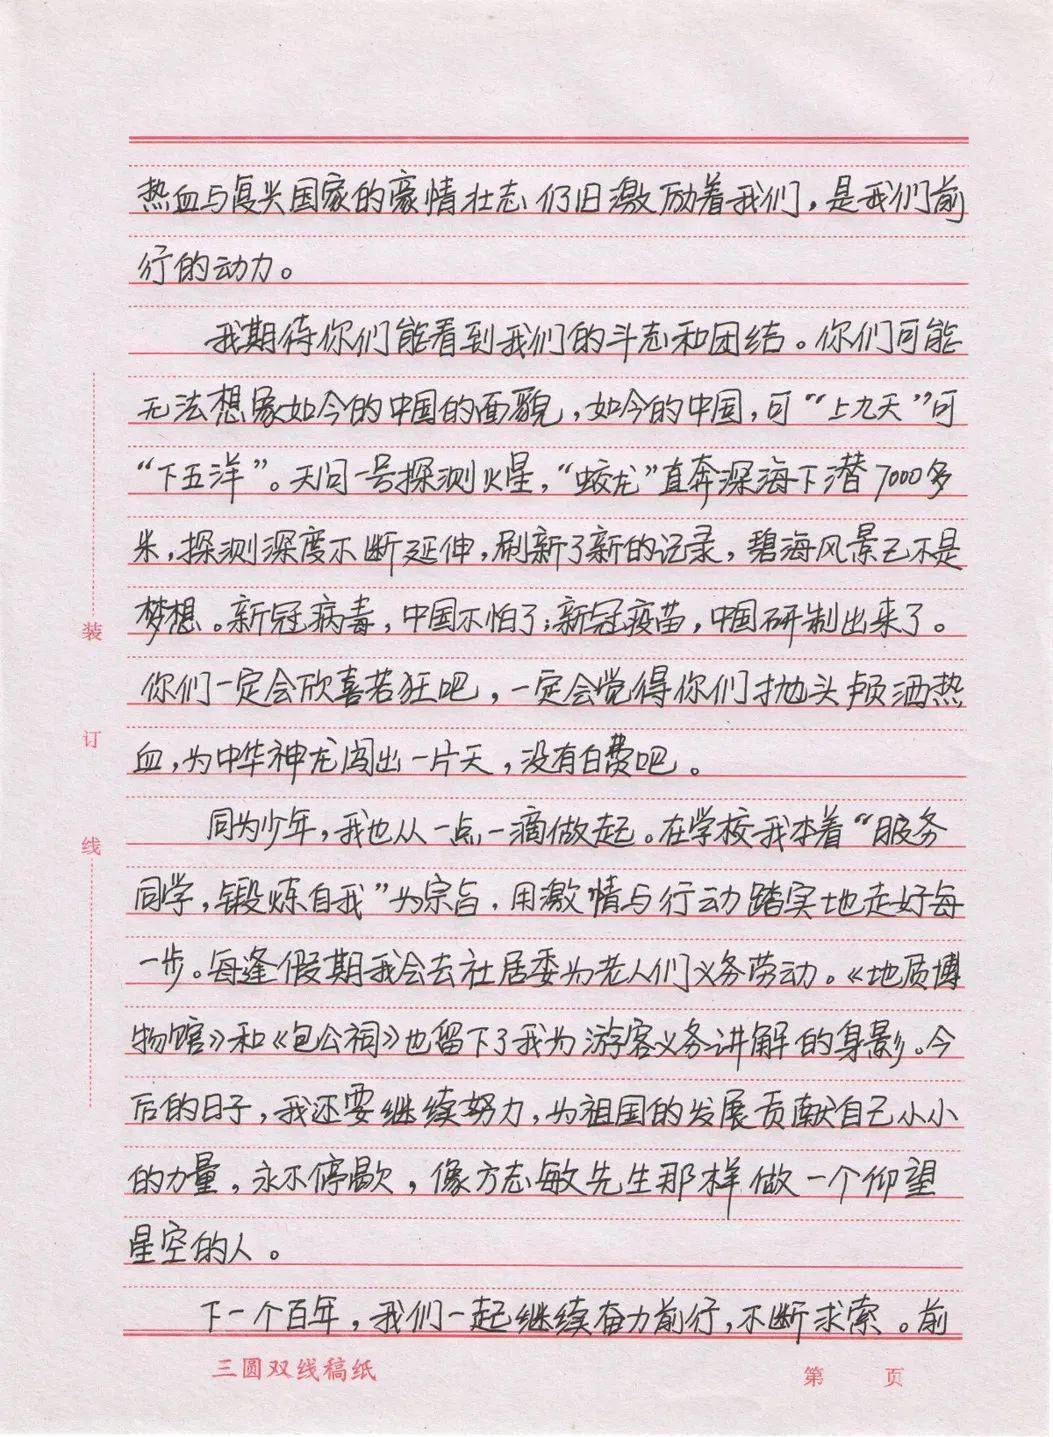 热血与复兴国家的豪情壮志仍旧激励着我们，是我们前
行的动力。
我期待你们能看到我们的斗志和团结。你们可能
无法想象如今的中国的面貌，如今的中国，可“上九天”可
“下五洋”。天问一号探测火星，“蛟龙”直奔深海下潜7000多
米，探测深度不断延伸，刷新了新的记录，碧海风景已不是
梦想。新冠病毒，中国不怕了；新冠疫苗，中国研制出来了。
你们一定会欣喜若狂吧，一定会觉得你们抛头颅洒热
血，为中华神龙闯出一片天，没有白费吧。
同为少年，我也从一点一滴做起。在学校我本着“服务
同学，锻炼自我”为宗旨，用激情与行动踏实地走好每
一步。每逢假期我会去社居委为老人们义务劳动。《地质博
物馆》和《包公祠》也留下了我为游客义务讲解的身影。今
后的日子，我还要继续努力，为祖国的发展贡献自己小小
的力量，永不停歇，像方志敏先生那样做一个仰望
星空的人。
下一个百年，我们一起继续奋力前行，不断求索。前
装
订
线
三圆双线稿纸
第 页